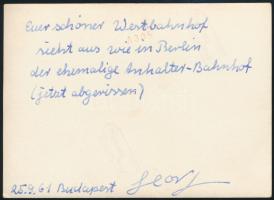 Euer schöner Westbahnhof
sieht aus wie in Berlin
der ehemalige Anhalter-Bahnhof
(jetzt abgerissen)
25.9.61 Budapest Georg